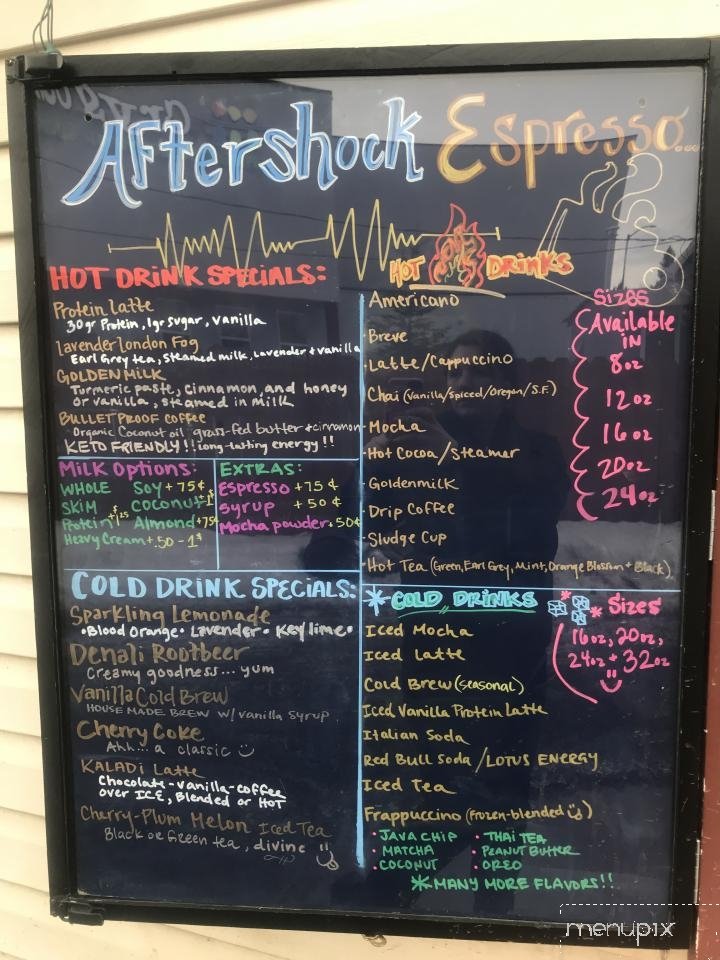 Aftershock Espresso...
HOT DRINK SPECIALS:
Protein Latte
30gr Protein, 1gr sugar, vanilla
lavender London Fog
Earl Grey tea, steamed milk, Lavender + vanilla
GOLDEN MILK
Turmeric paste, cinnamon, and honey
or vanilla, steamed in milk
BULLET PROOF COFFEE
Organic Coconut oil grass-fed butter + cinnamon
KETO FRIENDLY!! long-lasting energy!!
Milk Options:
WHOLE
Soy + 75¢
SKIM
Coconut + 1$
Protein + $1.25
Almond + 75¢
Heavy Cream + .50 - 1$
EXTRAS:
Espresso + 75¢
Syrup + 50¢
Mocha powder + 50¢
HOT DRINKS
Americano
Breve
Latte/Cappuccino
Chai (Vanilla/Spiced/Oregon/S.F.)
Mocha
Hot Cocoa/Steamer
Goldenmilk
Drip Coffee
Sludge Cup
Hot Tea (Green, Earl Grey, Mint, Orange Blossom + Black)
Sizes
Available
in
8oz
12oz
16oz
20oz
24oz
COLD DRINK SPECIALS:
Sparkling Lemonade
•Blood Orange• Lavender • Key lime•
Denali Rootbeer
Creamy goodness... yum
Vanilla Cold Brew
HOUSE MADE BREW W/ vanilla syrup
Cherry Coke
Ahh... a classic
KALADI Latte
Chocolate-vanilla-coffee
over ICE, Blended or HOT
Cherry-Plum Melon Iced Tea
Black or Green tea, divine
*COLD DRINKS
Iced Mocha
Iced Latte
Cold Brew (seasonal)
Iced Vanilla Protein Latte
Italian Soda
Red Bull Soda/LOTUS ENERGY
Iced Tea
Frappuccino (Frozen-blended)
• JAVA CHIP
• THAI TEA
• MATCHA
• PEANUT BUTTER
• COCONUT
• OREO
*MANY MORE FLAVORS!!
* Sizes
16oz, 20oz,
24oz + 32oz
menupix